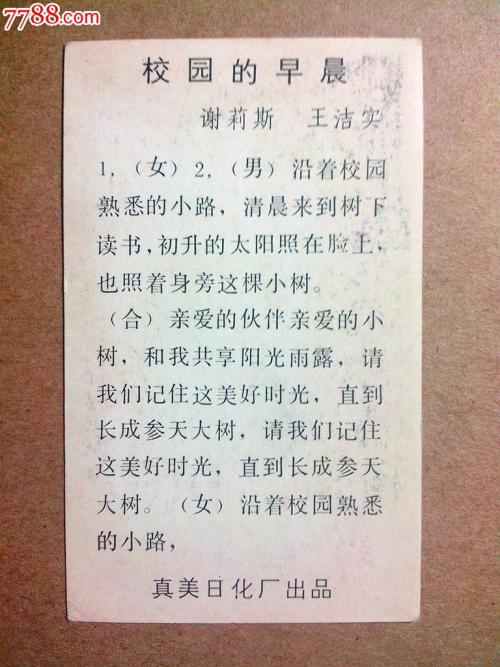 7788.com
校园的早晨
谢莉斯 王洁实
1，（女）2，（男）沿着校园
熟悉的小路，清晨来到树下
读书，初升的太阳照在脸上，
也照着身旁这棵小树。
（合）亲爱的伙伴亲爱的小
树，和我共享阳光雨露，请
我们记住这美好时光，直到
长成参天大树，请我们记住
这美好时光，直到长成参天
大树。（女）沿着校园熟悉
的小路，
真美日化厂出品